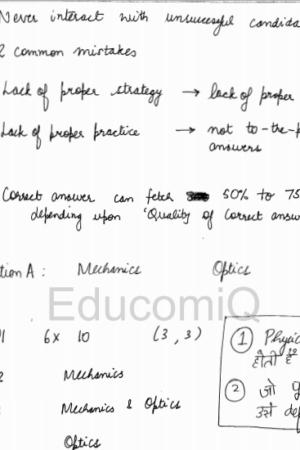 Never interact with unsuccessful candida
2 common mistakes
Lack of proper strategy → lack of proper
Lack of proper practice → not to-the-p
answers
Correct answer can fetch 50% to 75
depending upon 'Quality of correct answ
tion A : Mechanics Optics
EducomiQ
1 6x 10 (3,3)
① Physic
होती है
2 Mechanics
② जो
3 Mechanics & Optics
उसे dep
Optics